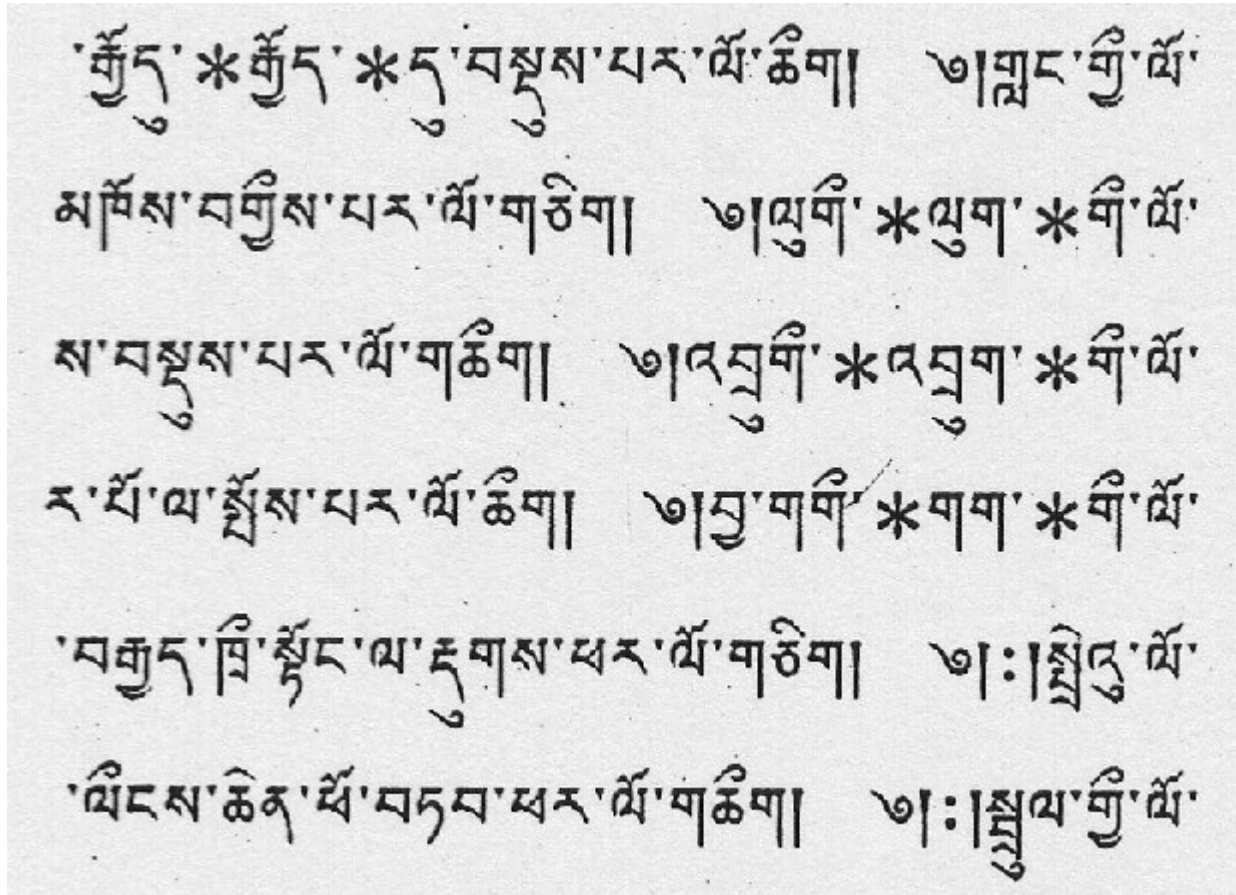 ་རྒྱོདུ་ *རྒྱོད་ *དུ་བསྡུས་པར་ལོ་ཆྀག།   ༄།གླང་གྱྀ་ལོ་
མཁོས་བགྱྀས་པར་ལོ་གཅིག།   ༄།ལུགྀ་ *ལུག་ *གྀ་ལོ་
ས་བསྡུས་པར་ལོ་གཆྀག།   ༄།འབྲུགྀ་ *འབྲུག་ *གྀ་ལོ་
ར་པོ་ལ་སྤོས་པར་ལོ་ཆྀག།   ༄།བྱ་གགྀ་ *གག་ *གྀ་ལོ་
་བརྒྱད་ཁྲྀ་སྟོང་ལ་རྡུགས་ཕར་ལོ་གཅིག།   ༄།:།སྤྲེའུ་ལོ་
་ལྀངས་ཆེན་ཕོ་བཏབ་ཕར་ལོ་གཆྀག།   ༄།:།སྦྲུལ་གྱྀ་ལོ་